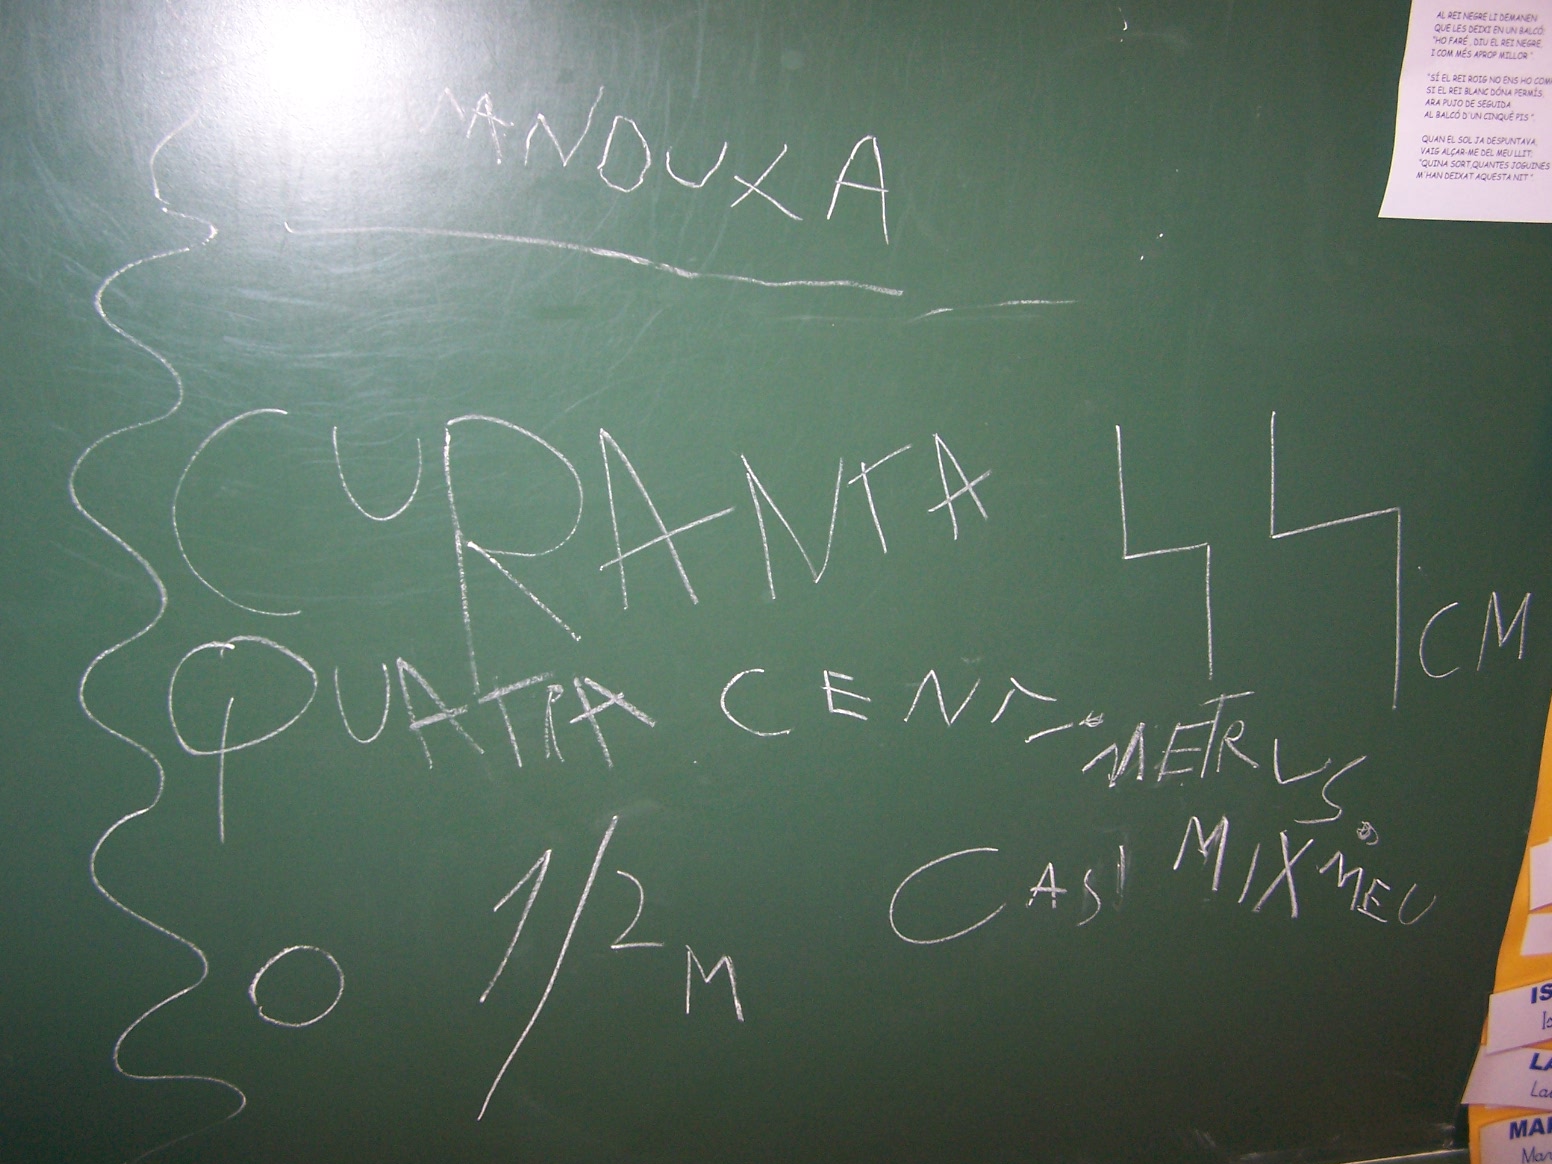 MANOUXA
CURANTA 44 CM
QUATRA CENTÍMETRUS.
O 1/2 M CASI MIX MEU
AL REI NEGRE LI DEMANEN
QUE LES DEIXI EN UN BALCÓ:
"HO FARÉ, DIU EL REI NEGRE,
I COM MÉS APROP MILLOR".
"SÍ EL REI ROIG NO ENS HO
SI EL REI BLANC DÓNA PERMÍS,
ARA PUJO DE SEGUIDA
AL BALCÓ D'UN CINQUÈ PIS".
QUAN EL SOL JA DESPUNTAVA,
VAIG ALÇAR-ME DEL MEU LLIT;
"QUINA SORT,QUANTES JOGUINES
M'HAN DEIXAT AQUESTA NIT".